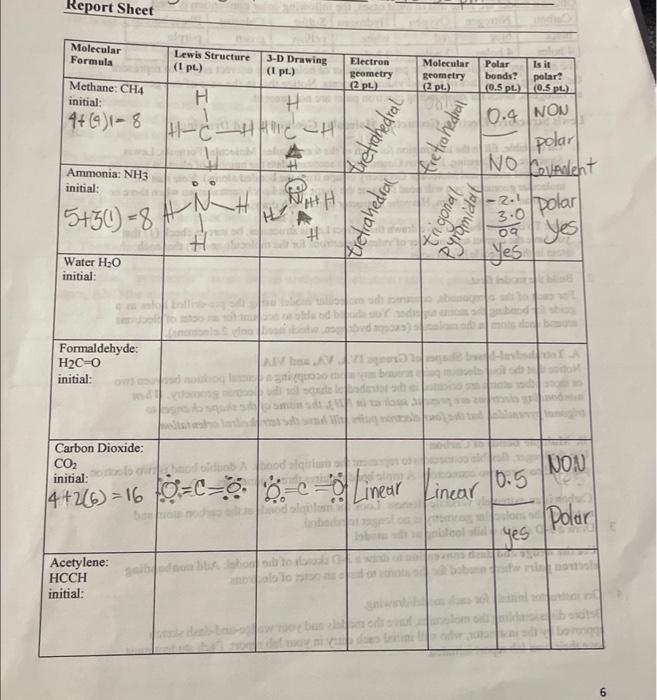 Report Sheet
Molecular Formula
Lewis Structure (1 pt.)
3-D Drawing (1 pt.)
Electron geometry (2 pt.)
Molecular geometry (2 pt.)
Polar bonds? (0.5 pt.)
Is it polar? (0.5 pt.)
Methane: CH4
initial:
4+(4)1= 8
H
H-C-H
H
H
H C -H
H
tretrahedral
tretrahedral
0.4
NO
NON
polar
Covenlent
Ammonia: NH3
initial:
5+3(1)=8
H-N-H
H
H N H
H
tietrahedral
trigonal
pyramidal
-2.1
3.0
09
Yes
Polar
Yes
Water H₂O
initial:
Formaldehyde:
H2C=O
initial:
Carbon Dioxide:
CO₂
initial:
4+2(6)=16
O=C=O
O=C=O
Linear
Linear
0.5
yes
NON
Polar
Acetylene:
HCCH
initial:
6